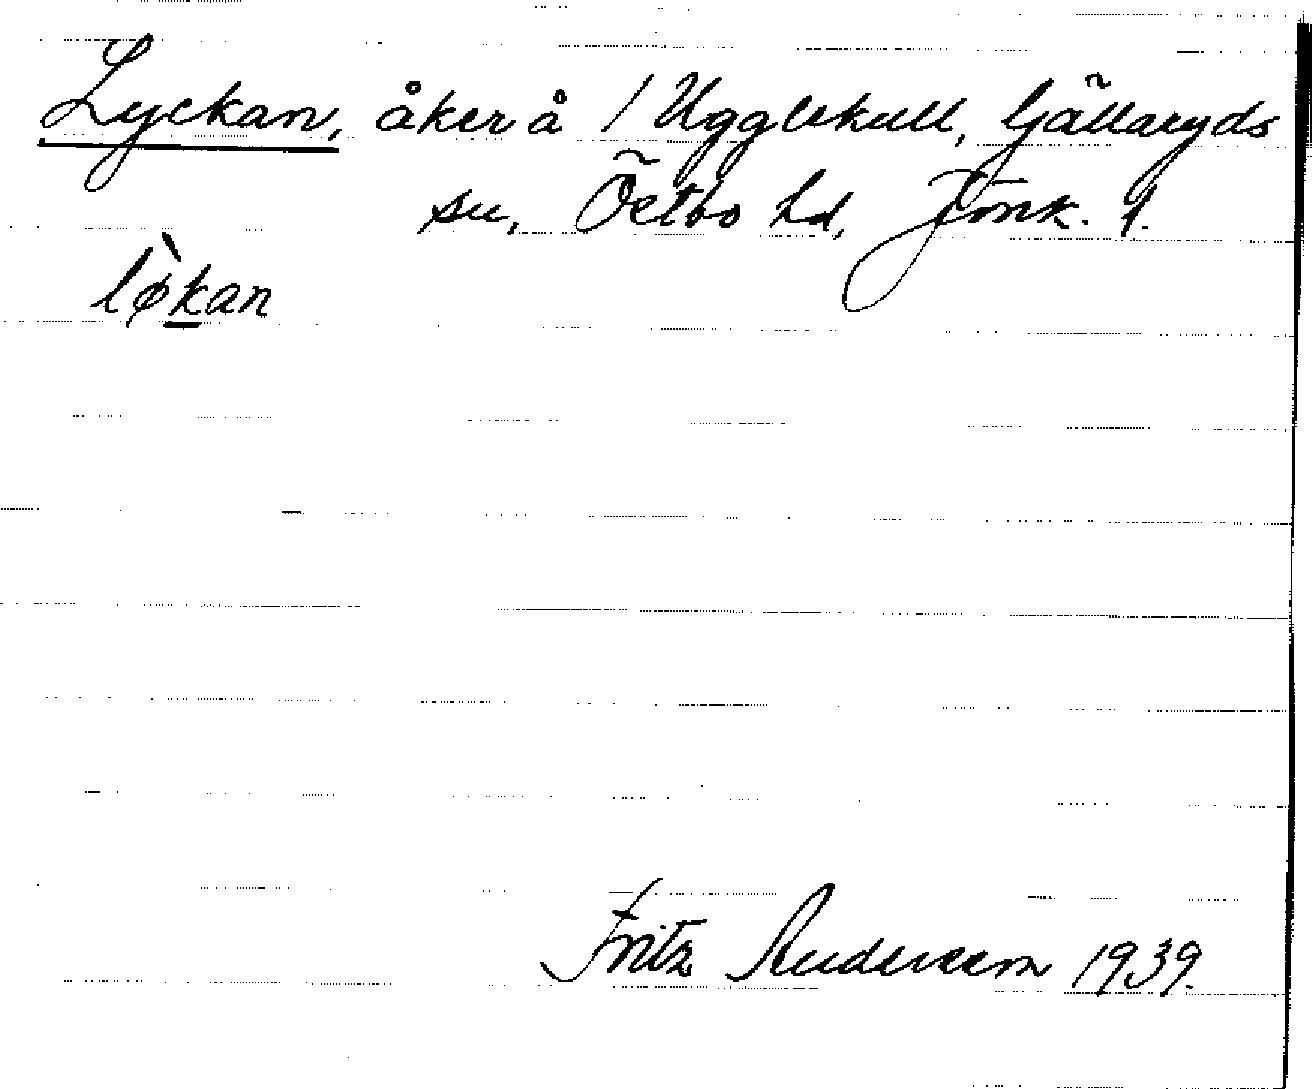 Lyckan, åker å 1 Ugglekull, Gällaryds
sn, Östbo hd, Jönk. l.
lø̀kan
Fritz Anderson 1939.